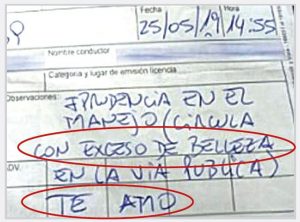 Fecha
Hora
25/05/19 14:55
Nombre conductor
Categoría y lugar de emisión licencia
Observaciones:
IPRUDENCIA EN EL
MANEJO (CIRCULA
CON EXCESO DE BELLEZA
EN LA VIA PUBLICA)
TE AMO